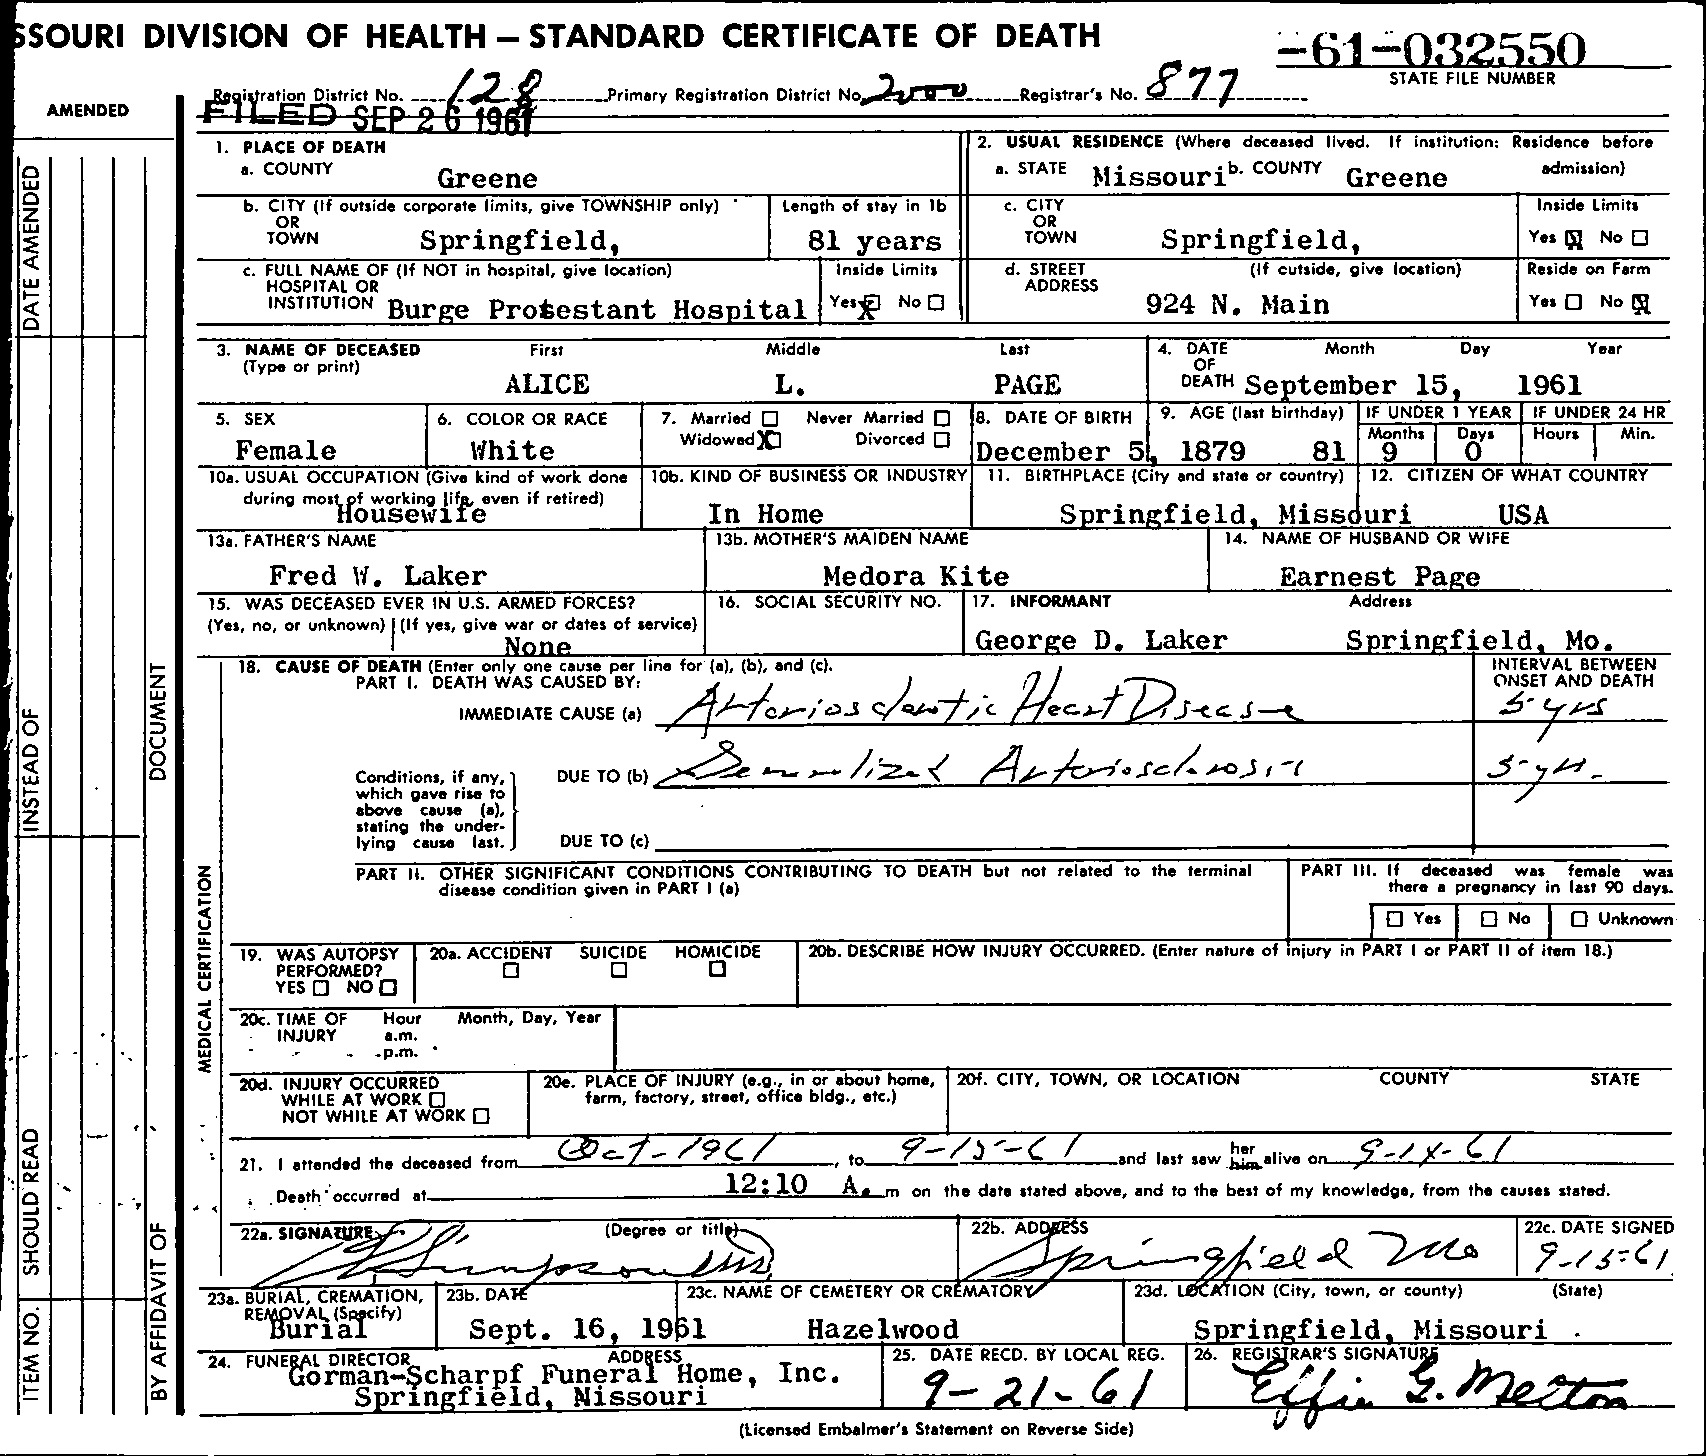 SSOURI DIVISION OF HEALTH — STANDARD CERTIFICATE OF DEATH
-61-032550
STATE FILE NUMBER
AMENDED
Registration District No. 128 Primary Registration District No. 2000 Registrar's No. 877
FILED SEP 26 1961
1. PLACE OF DEATH
a. COUNTY
Greene
2. USUAL RESIDENCE (Where deceased lived. If institution: Residence before admission)
a. STATE Missouri b. COUNTY Greene
b. CITY (If outside corporate limits, give TOWNSHIP only)
OR
TOWN Springfield,
Length of stay in 1b
81 years
c. CITY
OR
TOWN Springfield,
Inside Limits
Yes ☒ No ☐
c. FULL NAME OF (If NOT in hospital, give location)
HOSPITAL OR
INSTITUTION Burge Protestant Hospital
Inside Limits
Yes ☒ No ☐
d. STREET (If cutside, give location)
ADDRESS
924 N. Main
Reside on Farm
Yes ☐ No ☒
3. NAME OF DECEASED First Middle Last
(Type or print)
ALICE L. PAGE
4. DATE Month Day Year
OF
DEATH September 15, 1961
5. SEX
Female
6. COLOR OR RACE
White
7. Married ☐ Never Married ☐
Widowed ☒ Divorced ☐
8. DATE OF BIRTH
December 5, 1879
9. AGE (last birthday)
81
IF UNDER 1 YEAR
Months Days
9 0
IF UNDER 24 HR
Hours Min.
10a. USUAL OCCUPATION (Give kind of work done
during most of working life, even if retired)
Housewife
10b. KIND OF BUSINESS OR INDUSTRY
In Home
11. BIRTHPLACE (City and state or country)
Springfield, Missouri
12. CITIZEN OF WHAT COUNTRY
USA
13a. FATHER'S NAME
Fred W. Laker
13b. MOTHER'S MAIDEN NAME
Medora Kite
14. NAME OF HUSBAND OR WIFE
Earnest Page
15. WAS DECEASED EVER IN U.S. ARMED FORCES?
(Yes, no, or unknown) (If yes, give war or dates of service)
None
16. SOCIAL SECURITY NO.
17. INFORMANT Address
George D. Laker Springfield, Mo.
18. CAUSE OF DEATH (Enter only one cause per line for (a), (b), and (c).
PART I. DEATH WAS CAUSED BY:
INTERVAL BETWEEN
ONSET AND DEATH
IMMEDIATE CAUSE (a) Arteriosclerotic Heart Disease 5 yrs
Conditions, if any,
which gave rise to
above cause (a),
stating the under-
lying cause last.
DUE TO (b) Generalized Arteriosclerosis 5 yrs.
DUE TO (c)
PART II. OTHER SIGNIFICANT CONDITIONS CONTRIBUTING TO DEATH but not related to the terminal
disease condition given in PART I (a)
PART III. If deceased was female was
there a pregnancy in last 90 days.
☐ Yes ☐ No ☐ Unknown
19. WAS AUTOPSY
PERFORMED?
YES ☐ NO ☐
20a. ACCIDENT SUICIDE HOMICIDE
☐ ☐ ☐
20b. DESCRIBE HOW INJURY OCCURRED. (Enter nature of injury in PART I or PART II of item 18.)
20c. TIME OF Hour Month, Day, Year
INJURY a.m.
p.m.
20d. INJURY OCCURRED
WHILE AT WORK ☐
NOT WHILE AT WORK ☐
20e. PLACE OF INJURY (e.g., in or about home,
farm, factory, street, office bldg., etc.)
20f. CITY, TOWN, OR LOCATION COUNTY STATE
21. I attended the deceased from Oct-1961, to 9-15-61 and last saw her him alive on 9-14-61
Death occurred at 12:10 A.m on the date stated above, and to the best of my knowledge, from the causes stated.
22a. SIGNATURE (Degree or title)
Simpson MD
22b. ADDRESS
Springfield Mo
22c. DATE SIGNED
9-15-61
23a. BURIAL, CREMATION,
REMOVAL (Specify)
Burial
23b. DATE
Sept. 16, 1961
23c. NAME OF CEMETERY OR CREMATORY
Hazelwood
23d. LOCATION (City, town, or county) (State)
Springfield, Missouri
24. FUNERAL DIRECTOR ADDRESS
Gorman-Scharpf Funeral Home, Inc.
Springfield, Missouri
25. DATE RECD. BY LOCAL REG.
9-21-61
26. REGISTRAR'S SIGNATURE
Effie G. Melton
(Licensed Embalmer's Statement on Reverse Side)
DATE AMENDED
INSTEAD OF
DOCUMENT
MEDICAL CERTIFICATION
SHOULD READ
ITEM NO.
BY AFFIDAVIT OF